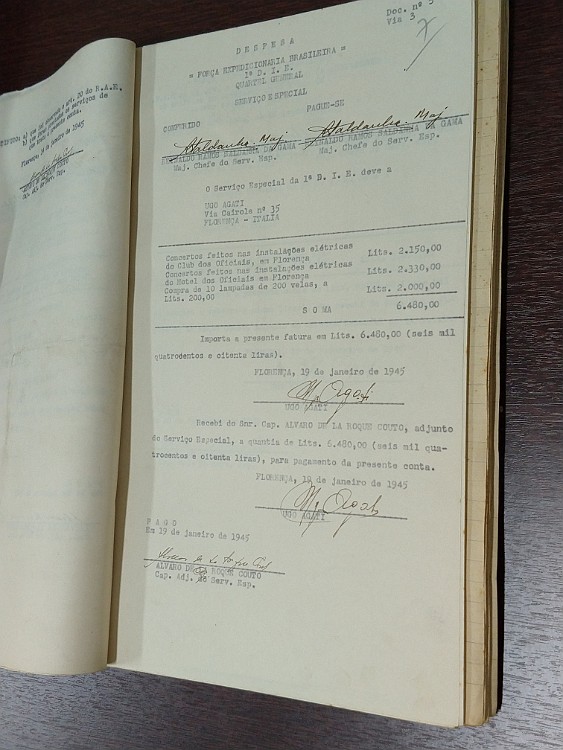 art. 20 do R.A.E.
serviços de
conta.
Florença, de janeiro de 1945
Doc. nº 5
Via 3
7
D E S P E S A
" FORÇA EXPEDICIONARIA BRASILEIRA "
1ª D. I. E.
QUARTEL GENERAL
SERVIÇO ESPECIAL
CONFERIDO PAGUE-SE
Asaldanha. Maj Asaldanha. Maj
RAMOS SALDANHA DA GAMA RAMOS SALDANHA DA GAMA
Maj. Chefe do Serv. Esp. Maj. Chefe do Serv. Esp.
O Serviço Especial da 1ª D. I. E. deve a
UGO AGATI
Via Cairola nº 35
FLORENÇA - ITALIA
Concertos feitos nas instalações elétricas
do Club dos Oficiais, em Florença Lits. 2.150,00
Concertos feitos nas instalações elétricas
do Hotel dos Oficiais em Florença Lits. 2.330,00
Compra de 10 lampadas de 200 velas, a
Lits. 200,00 Lits. 2.000,00
S O M A 6.480,00
Importa a presente fatura em Lits. 6.480,00 (seis mil
quatrodentos e oitenta liras).
FLORENÇA, 19 de janeiro de 1945
Agati
UGO AGATI
Recebi do Snr. Cap. ALVARO DE LA ROQUE COUTO, adjunto
do Serviço Especial, a quantia de Lits. 6.480,00 (seis mil qua-
trocentos e oitenta liras), para pagamento da presente conta.
FLORENÇA, 19 de janeiro de 1945
Agati
UGO AGATI
P A G O
Em 19 de janeiro de 1945
ALVARO DE LA ROQUE COUTO
Cap. Adj. do Serv. Esp.